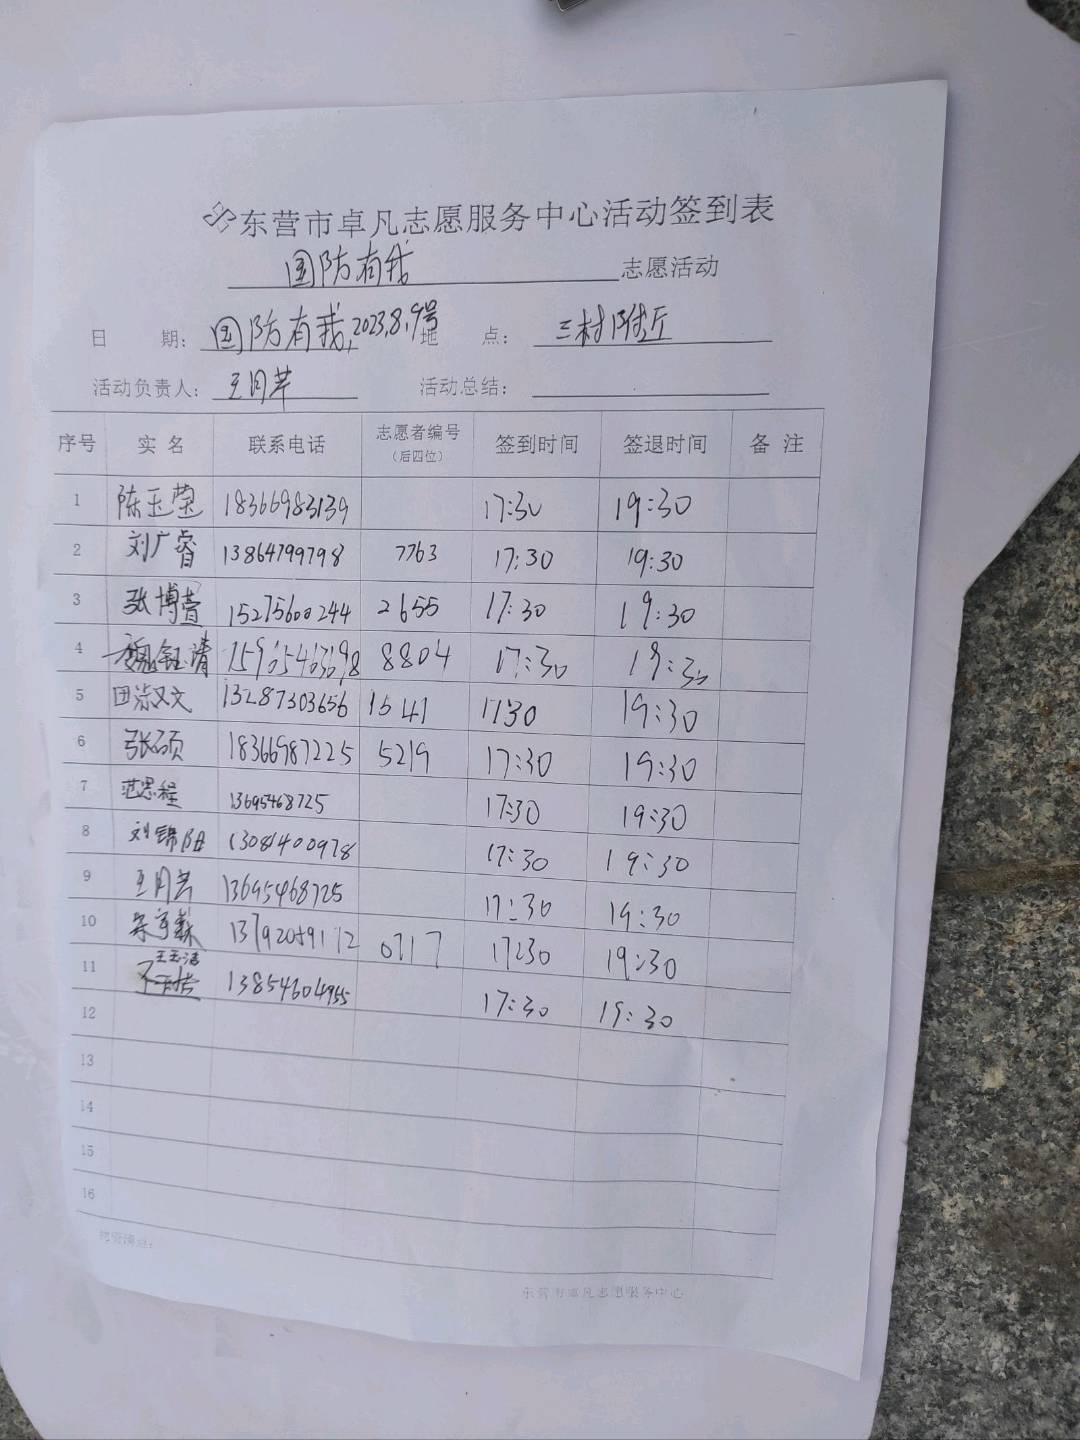 东营市卓凡志愿服务中心活动签到表
国防有我 志愿活动
日 期: 国防有我,2023.8.9号 地 点: 三村附近
活动负责人: 王月芹 活动总结:
序号 实名 联系电话 志愿者编号(后四位) 签到时间 签退时间 备注
1 陈玉莹 18366983139 17:30 19:30
2 刘广睿 13864799798 7763 17:30 19:30
3 张博萱 15275600244 2655 17:30 19:30
4 魏钰清 15965463698 8804 17:30 19:30
5 田 文 13287303656 1541 17:30 19:30
6 张硕 18366987225 5219 17:30 19:30
7 范思程 13695468725 17:30 19:30
8 刘锦阳 13081400978 17:30 19:30
9 王月芹 13695468725 17:30 19:30
10 13792059112 0717 17:30 19:30
11 13854604955 17:30 19:30
12
13
14
15
16
东营市卓凡志愿服务中心